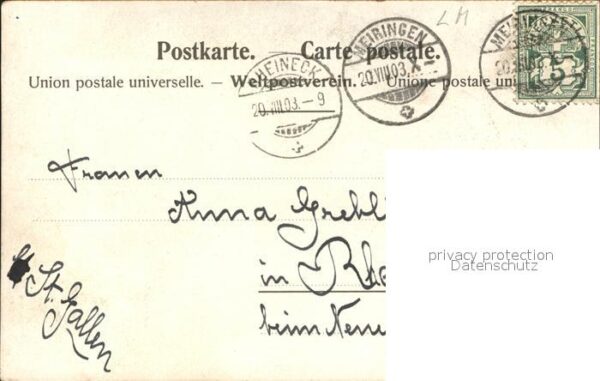 LM
Postkarte. — Carte postale.
Union postale universelle. — Weltpostverein. — Unione postale uni
HEINECK
20.VIII.03.–9
MEIRINGEN
20.VIII.03.
MEIRINGEN
5
Frauen
Anna Grebl
in Rhe
beim Neue
St. Gallen
privacy protection
Datenschutz